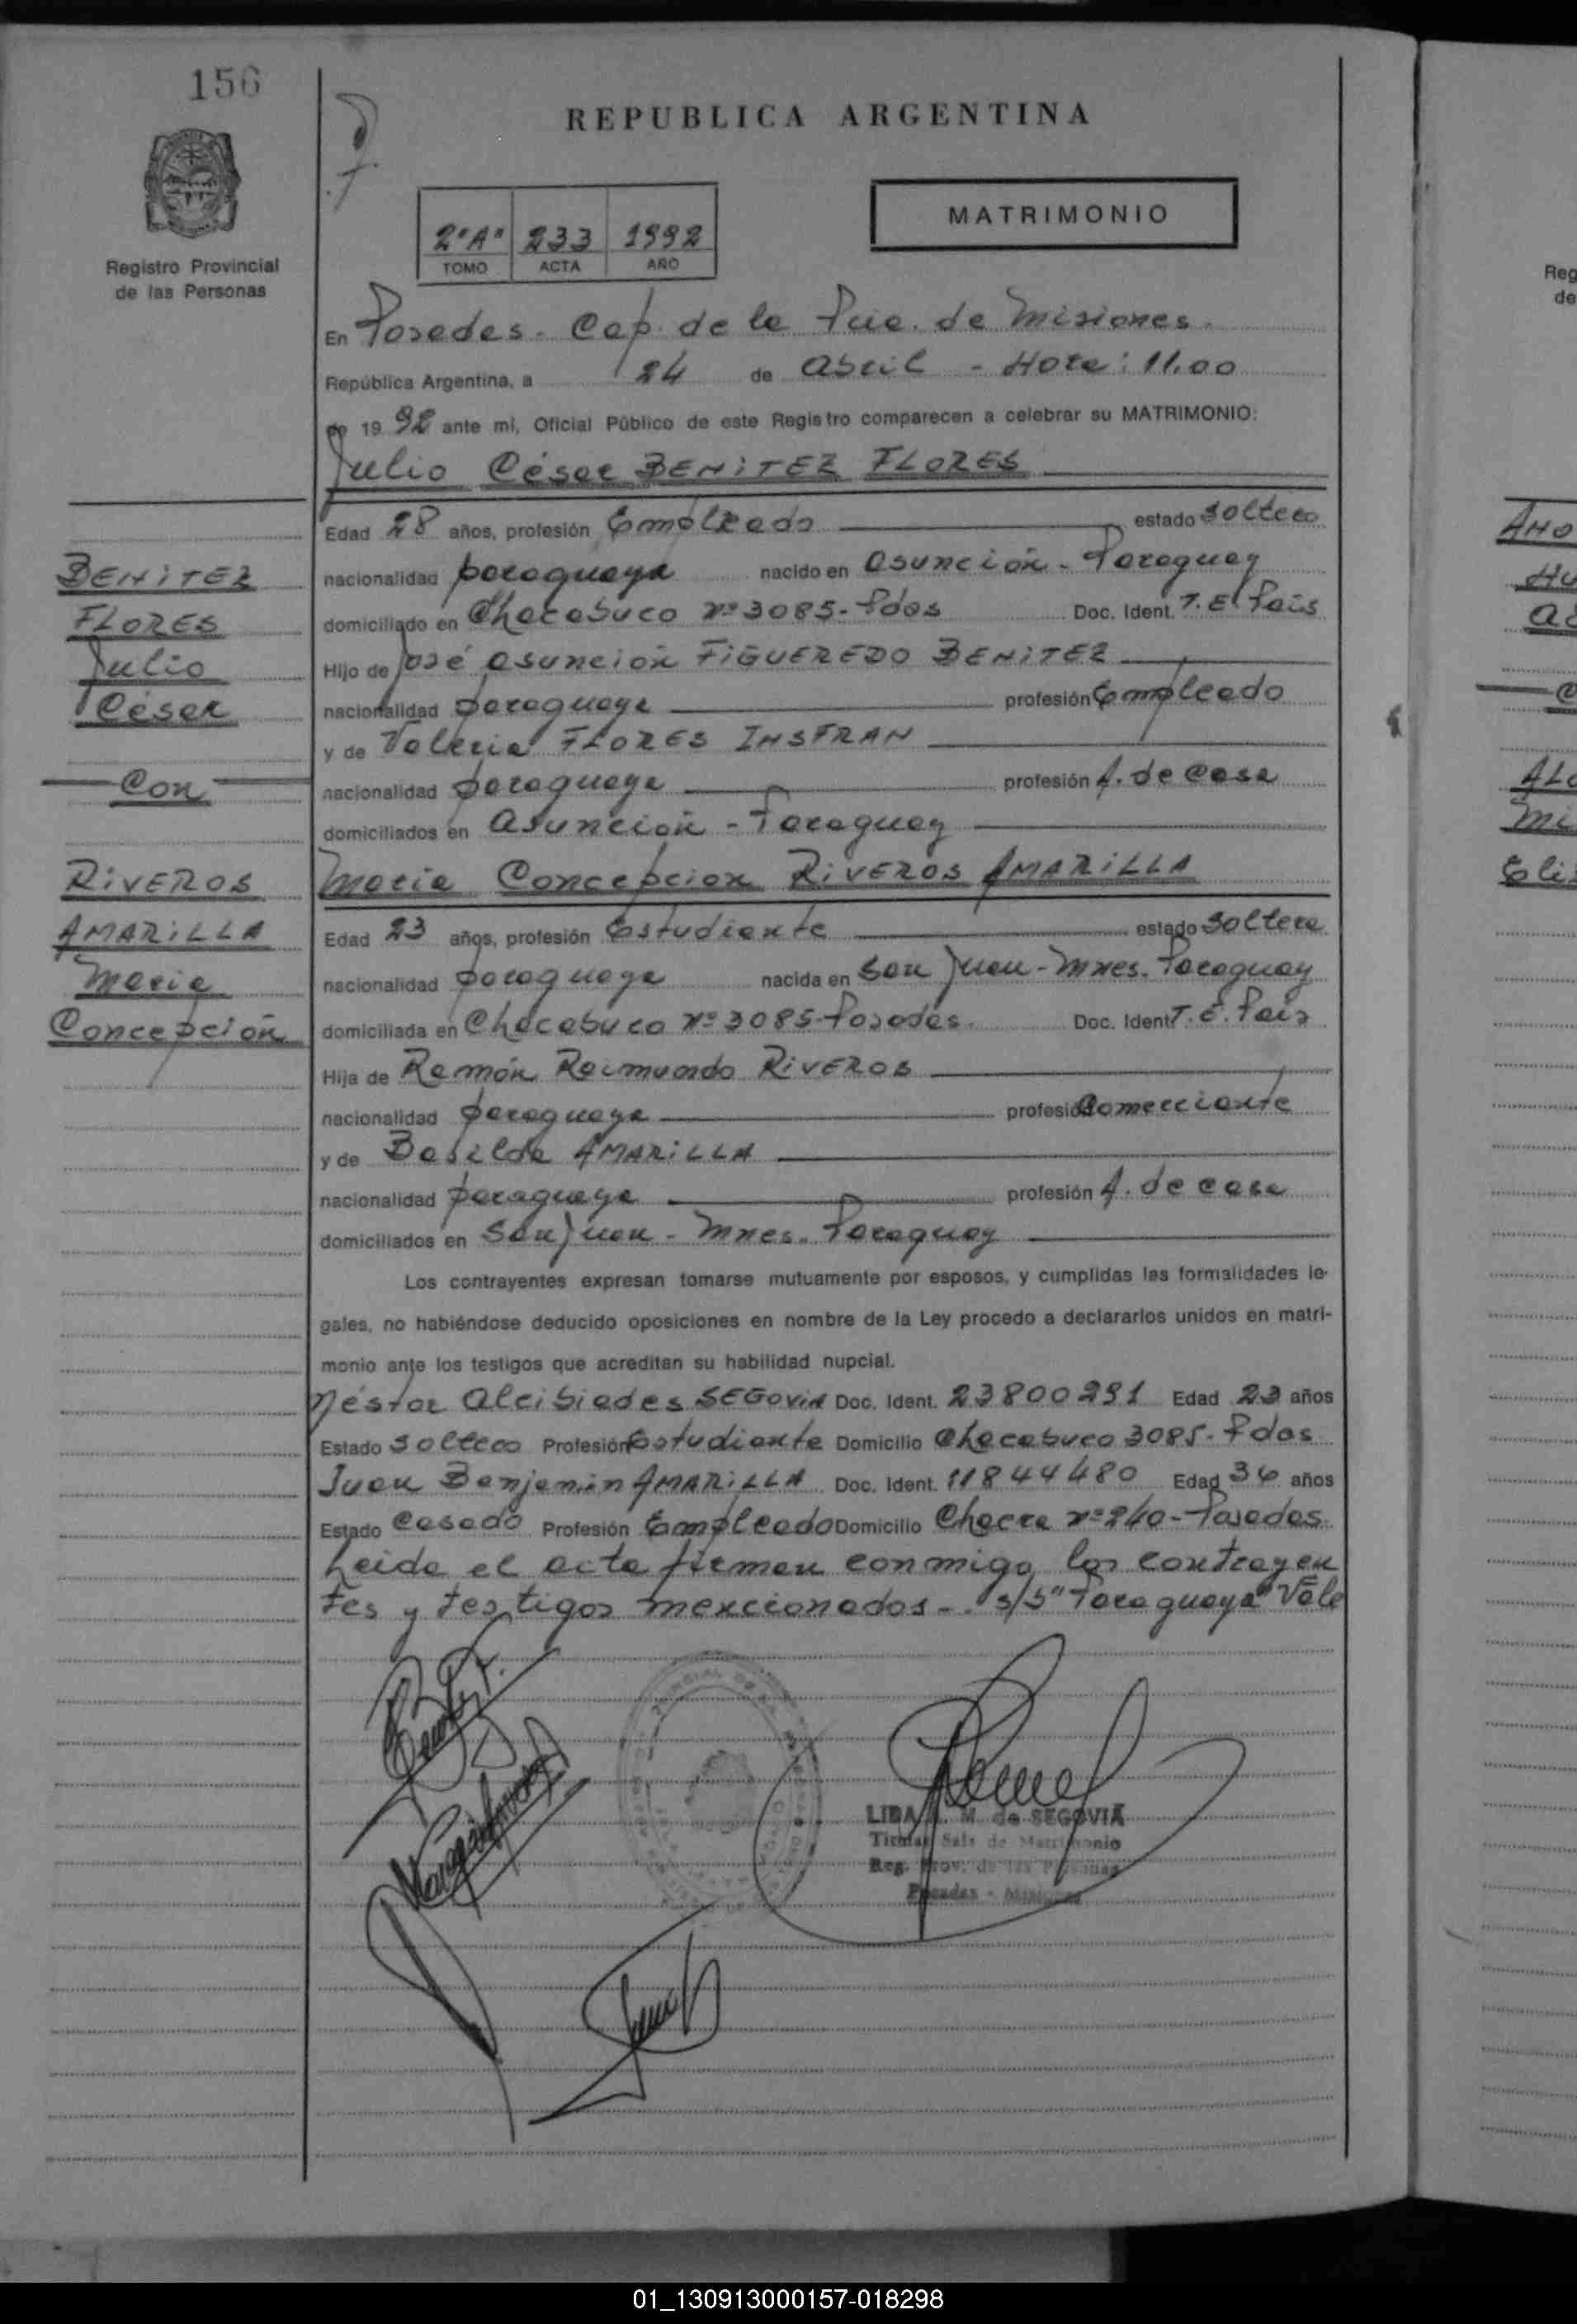 156
REPUBLICA ARGENTINA
MATRIMONIO
2"A" 233 1992
TOMO ACTA AÑO
Registro Provincial
de las Personas
En Posadas - Cap. de la Pcia. de Misiones.
República Argentina, a 24 de Abril - Hora: 11.00
de 1992 ante mi, Oficial Público de este Registro comparecen a celebrar su MATRIMONIO:
Julio César BENITEZ FLORES
Edad 28 años, profesión Empleado estado soltero
nacionalidad paraguaya nacido en Asunción - Paraguay
domiciliado en Chacabuco nº 3085 - Pdas Doc. Ident. T. E. País
Hijo de José Asunción FIGUEREDO BENITEZ
nacionalidad paraguaya profesión Empleado
y de Valeria FLORES INSFRAN
nacionalidad paraguaya profesión A. de casa
domiciliados en Asunción - Paraguay
María Concepcion RIVEROS AMARILLA
Edad 23 años, profesión Estudiante estado soltera
nacionalidad paraguaya nacida en San Juan - Mnes. Paraguay
domiciliada en Chacabuco nº 3085 - Posadas. Doc. Ident. T. E. País
Hija de Ramón Raimundo RIVEROS
nacionalidad paraguaya profesión Comerciante
y de Basilda AMARILLA
nacionalidad paraguaya profesión A. de casa
domiciliados en San Juan - Mnes. Paraguay
Los contrayentes expresan tomarse mutuamente por esposos, y cumplidas las formalidades le-
gales, no habiéndose deducido oposiciones en nombre de la Ley procedo a declararlos unidos en matri-
monio ante los testigos que acreditan su habilidad nupcial.
Néstor Alcibiades SEGOVIA Doc. Ident. 23800291 Edad 23 años
Estado soltero Profesión Estudiante Domicilio Chacabuco 3085 - Pdas
Juan Benjamin AMARILLA Doc. Ident. 11844480 Edad 36 años
Estado Casado Profesión Empleado Domicilio Chacra nº 240 - Posadas
Leida el acta firman conmigo los contrayen
tes y testigos mencionados -. s/b "Paraguaya" Vale
BENITEZ
FLORES
Julio
César
Con
RIVEROS
AMARILLA
María
Concepción
LIBA M. de SEGOVIA
Titular Sala de Matrimonio
Reg. Prov. de las Personas
Posadas - Misiones
Reg
de
AL
Mi
01_130913000157-018298